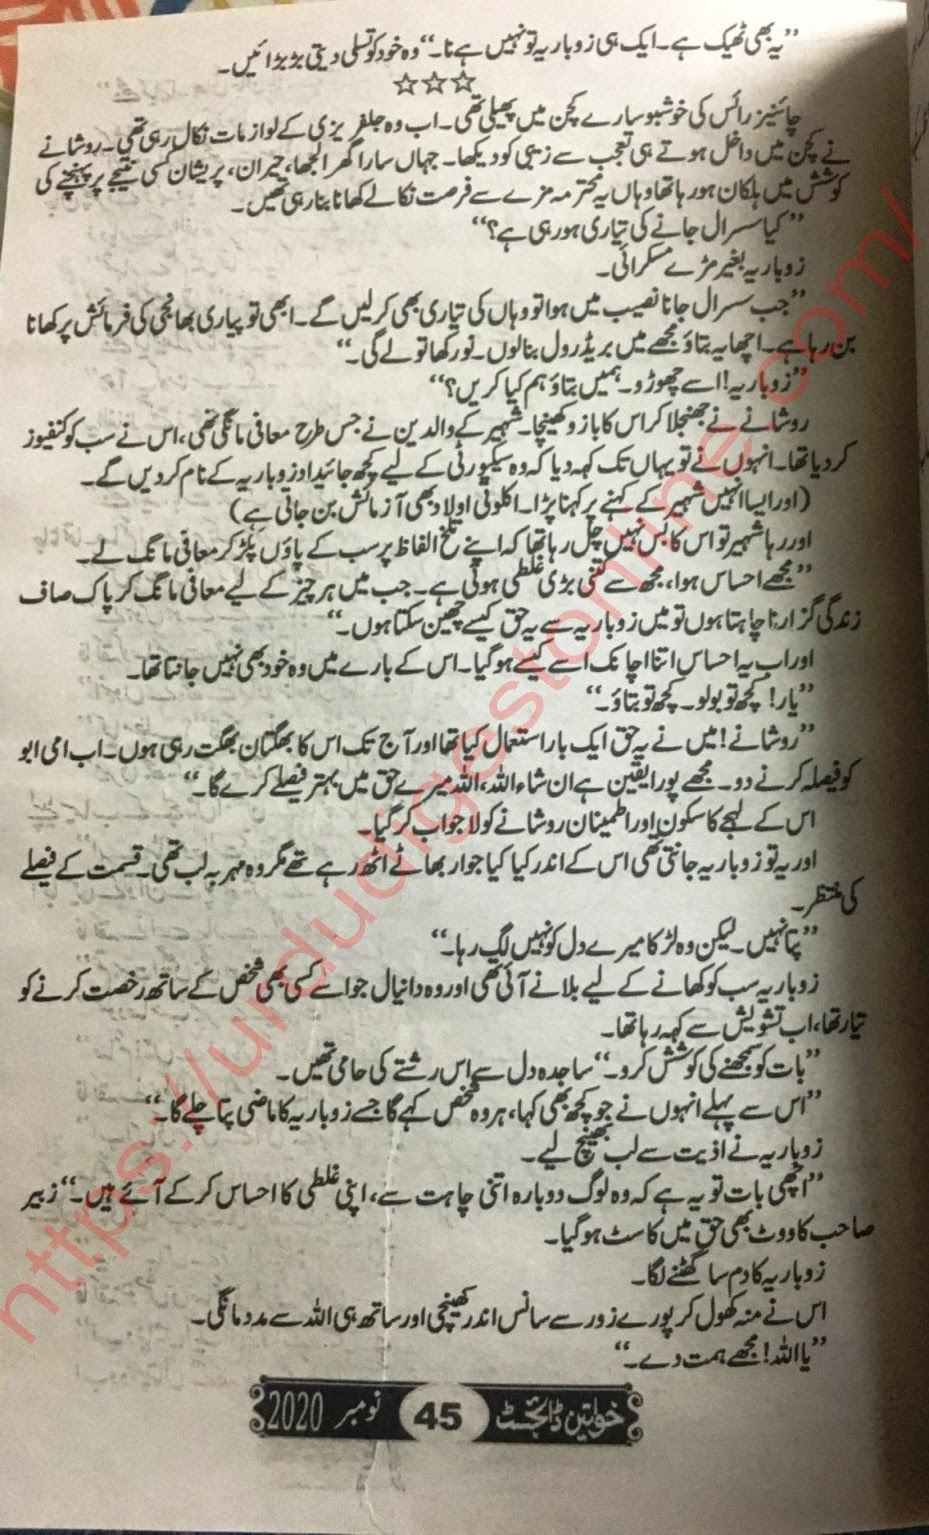 ”یہ بھی ٹھیک ہے۔ ایک ہی زوباریہ تو نہیں ہے نا۔“ وہ خود کو تسلی دیتی بڑبڑائیں۔
☆☆☆
چائنیز رائس کی خوشبو سارے کچن میں پھیلی تھی۔ اب وہ جلفریزی کے لوازمات نکال رہی تھی۔ روشانے
نے کچن میں داخل ہوتے ہی تعجب سے زیبی کو دیکھا۔ جہاں سارا گھر الجھا، حیران، پریشان کسی نتیجے پر پہنچنے کی
کوشش میں ہلکان ہو رہا تھا وہاں یہ محترمہ مزے سے فرصت نکالے کھانا بنا رہی تھیں۔
”کیا سسرال جانے کی تیاری ہو رہی ہے؟“
زوباریہ بغیر مڑے مسکرائی۔
”جب سسرال جانا نصیب میں ہوا تو وہاں کی تیاری بھی کر لیں گے۔ ابھی تو پیاری بھانجی کی فرمائش پر کھانا
بن رہا ہے۔ اچھا یہ بتاؤ مجھے میں بریڈ رول بنالوں۔ نور کھا تو لے گی۔“
”زوباریہ! اسے چھوڑو۔ ہمیں بتاؤ ہم کیا کریں؟“
روشانے نے جھنجلا کر اس کا بازو کھینچا۔ شہیر کے والدین نے جس طرح معافی مانگی تھی، اس نے سب کو کنفیوز
کر دیا تھا۔ انہوں نے تو یہاں تک کہہ دیا کہ وہ سیکیورٹی کے لیے کچھ جائیداد زوباریہ کے نام کر دیں گے۔
(اور ایسا انہیں شہیر کے کہنے پر کہنا پڑا۔ اکلوتی اولاد بھی آزمائش بن جاتی ہے)
اور رہا شہیر تو اس کا بس نہیں چل رہا تھا کہ اپنے تلخ الفاظ پر سب کے پاؤں پکڑ کر معافی مانگ لے۔
”مجھے احساس ہوا، مجھ سے کتنی بڑی غلطی ہوئی ہے۔ جب میں ہر چیز کے لیے معافی مانگ کر پاک صاف
زندگی گزارنا چاہتا ہوں تو میں زوباریہ سے یہ حق کیسے چھین سکتا ہوں۔“
اور اب یہ احساس اتنا اچانک اسے کیسے ہو گیا۔ اس کے بارے میں وہ خود بھی نہیں جانتا تھا۔
”یار! کچھ تو بولو۔ کچھ تو بتاؤ۔“
”روشانے! میں نے یہ حق ایک بار استعمال کیا تھا اور آج تک اس کا بھگتان بھگت رہی ہوں۔ اب امی ابو
کو فیصلہ کرنے دو۔ مجھے پورا یقین ہے ان شاء اللہ، اللہ میرے حق میں بہتر فیصلے کرے گا۔“
اس کے لہجے کا سکون اور اطمینان روشانے کو لاجواب کر گیا۔
اور یہ تو زوباریہ جانتی تھی اس کے اندر کیا کیا جوار بھاٹے اٹھ رہے تھے مگر وہ مہر بہ لب تھی۔ قسمت کے فیصلے
کی منتظر۔
”پتا نہیں۔ لیکن وہ لڑکا میرے دل کو نہیں لگ رہا۔“
زوباریہ سب کو کھانے کے لیے بلانے آئی تھی اور وہ دانیال جو اسے کسی بھی شخص کے ساتھ رخصت کرنے کو
تیار تھا، اب تشویش سے کہہ رہا تھا۔
”بات کو سمجھنے کی کوشش کرو۔“ ساجدہ دل سے اس رشتے کی حامی تھیں۔
”اس سے پہلے انہوں نے جو کچھ بھی کہا، ہر وہ شخص کہے گا جسے زوباریہ کا ماضی پتا چلے گا۔“
زوباریہ نے اذیت سے لب بھینچ لیے۔
”اچھی بات تو یہ ہے کہ وہ لوگ دوبارہ اتنی چاہت سے، اپنی غلطی کا احساس کر کے آئے ہیں۔“ زبیر
صاحب کا ووٹ بھی حق میں کاسٹ ہو گیا۔
زوباریہ کا دم سا گھٹنے لگا۔
اس نے منہ کھول کر پورے زور سے سانس اندر کھینچی اور ساتھ ہی اللہ سے مدد مانگی۔
”یا اللہ! مجھے ہمت دے۔“
خواتین ڈائجسٹ 45 نومبر 2020
https://urdudigestonline.com/